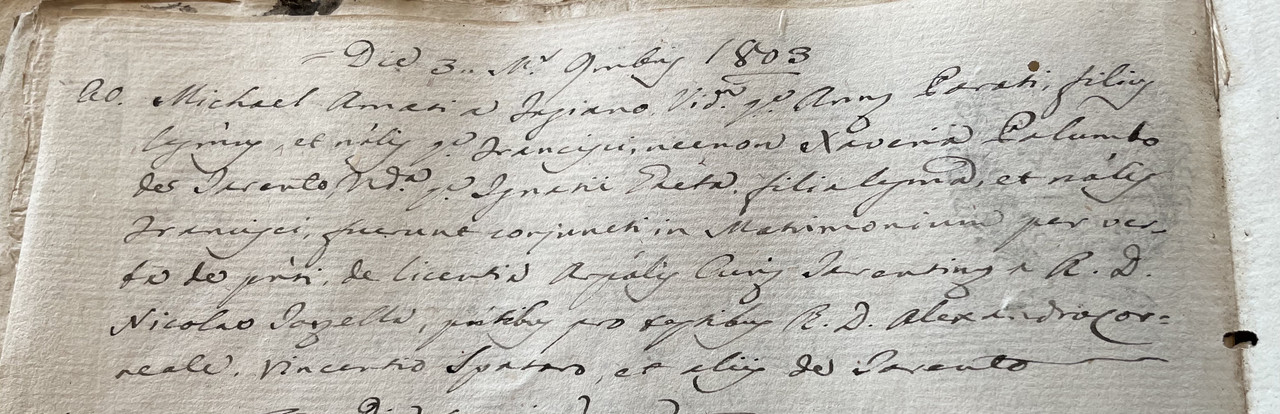 Die 3.. M.s 9mbris 1803
20. Michael Amati a Fasiano Vid.s q.m Annę Parati, filius
lgmus, et nalis q.m Francisci, necnon Xaveria Palumbo
de Tarento, Vid.a q.m Ignatii Taeta, filia lgma, et nalis
Francisci, fuerunt conjuncti in Matrimonium per ver-
ba de pnti, de licentia Curię Tarentinę a R. D.
Nicolao, pntibus pro testibus R. D. Alexandro Cor=
reale, Vincentio Spataro, et aliis de Tarento
Die